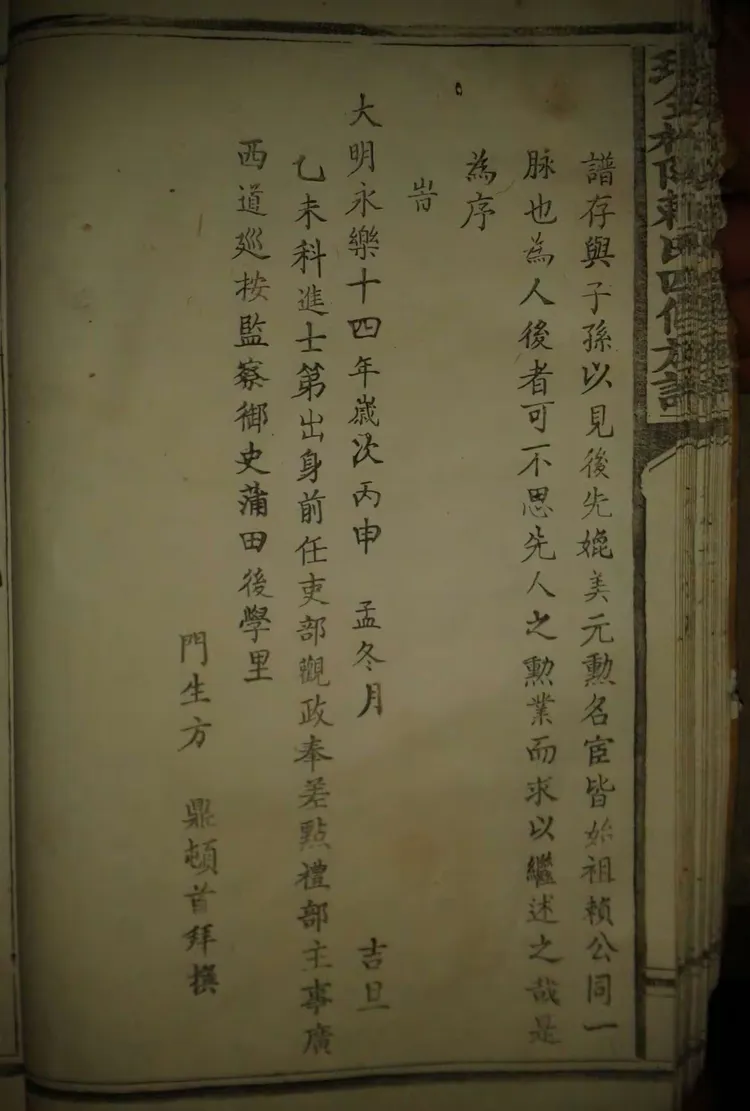 譜存與子孫以見後先媲美元勲名宦皆始祖頼公同一
脉也為人後者可不思先人之勲業而求以繼述之哉是
為序
旹
大明永樂十四年嵗次丙申 孟冬月 吉旦
乙未科進士第出身前任吏部觀政奉差點禮部主事廣
西道廵按監察御史蒲田後學里
門生方 鼎頓首拜撰